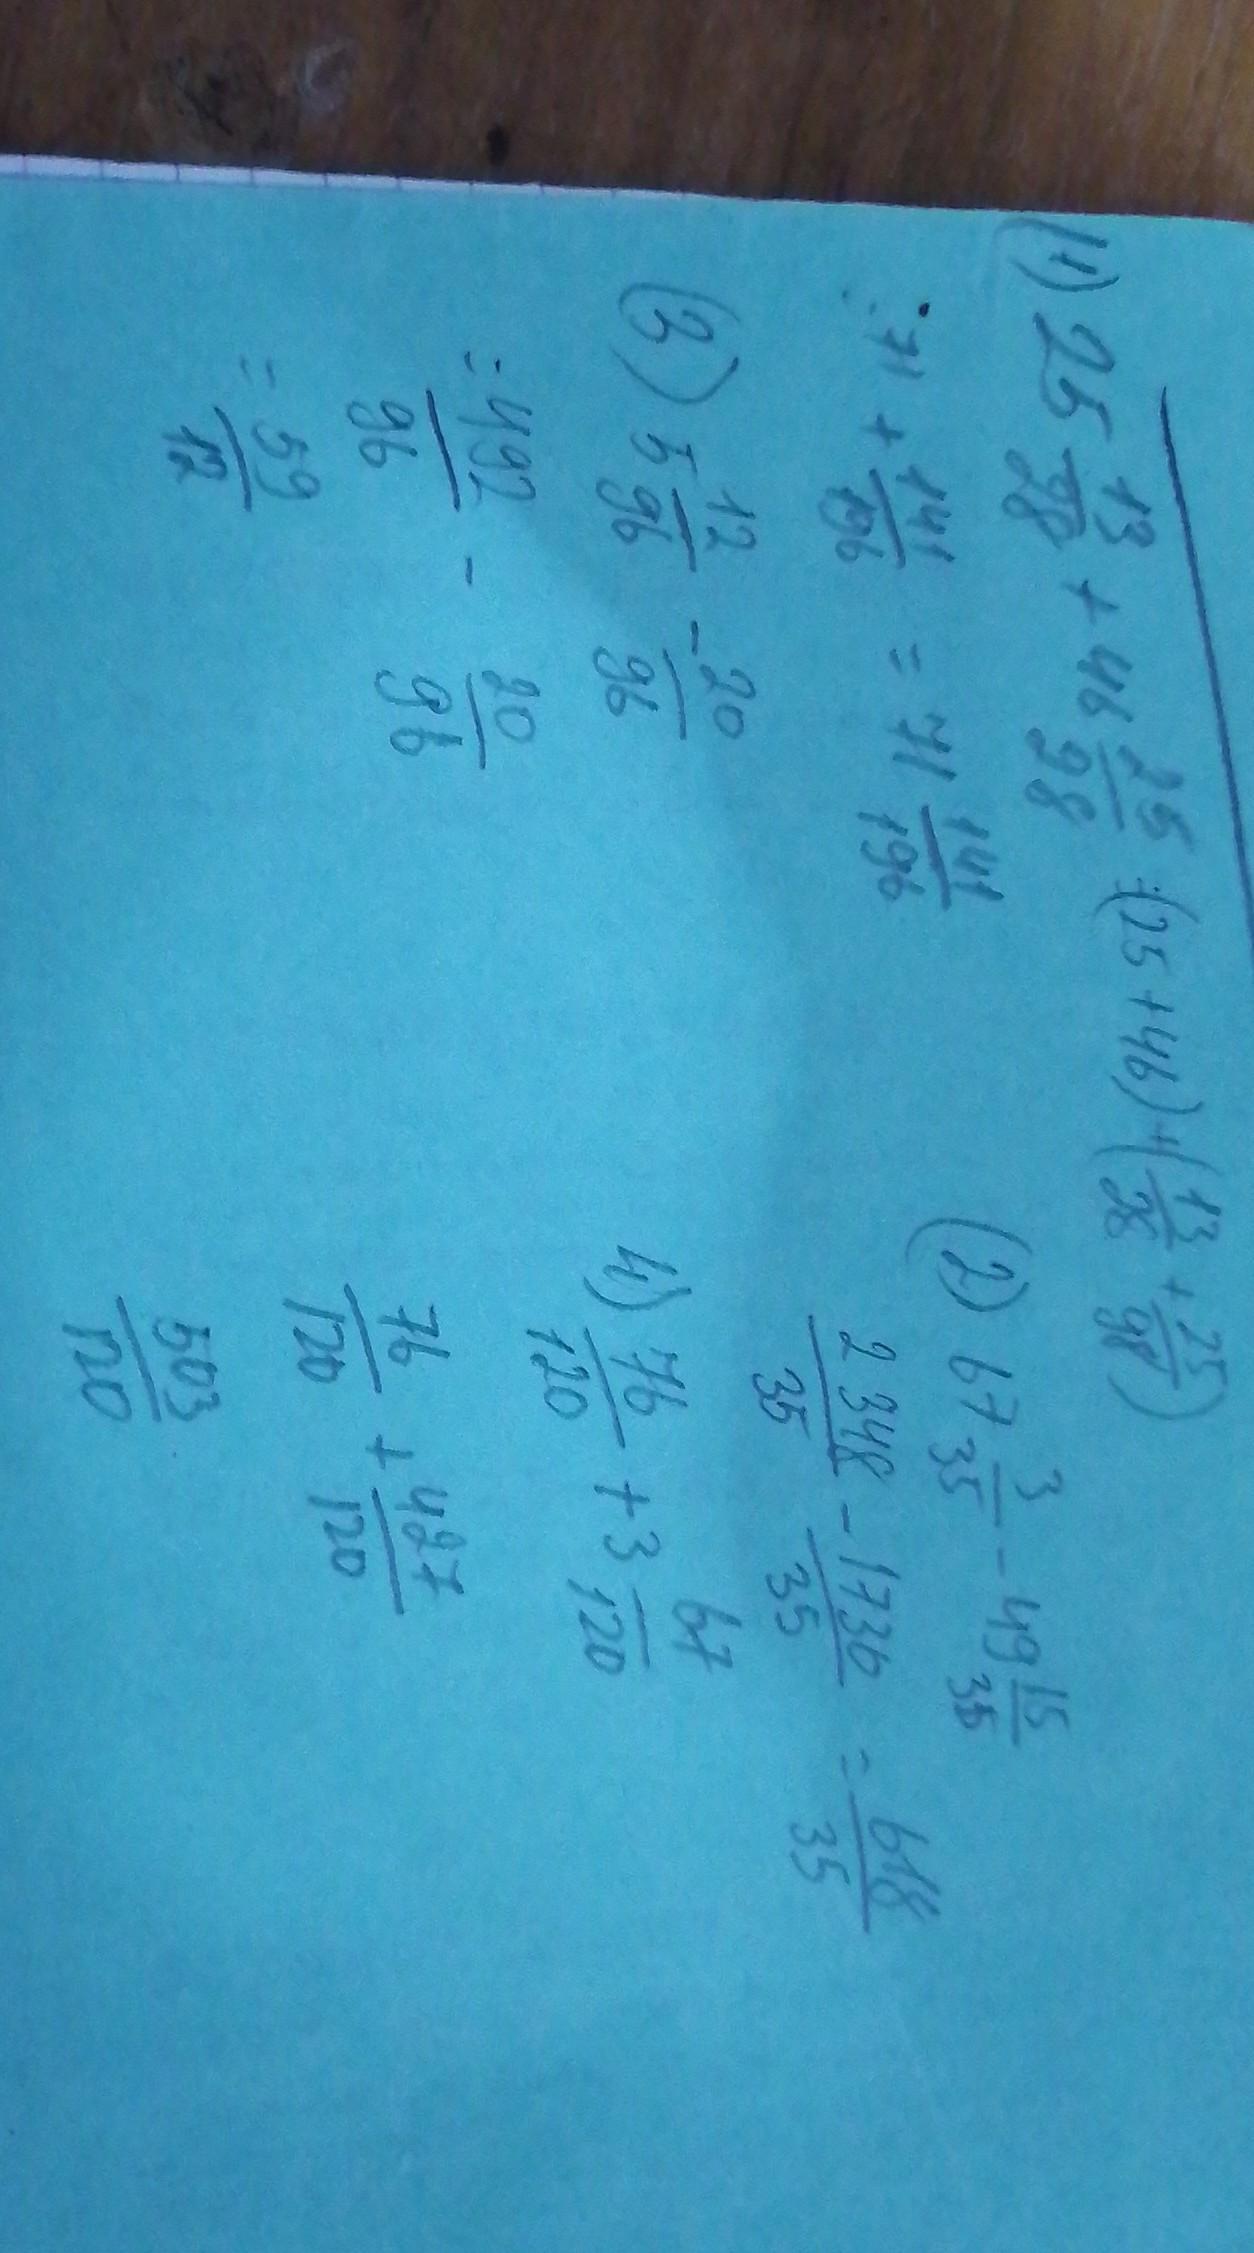 1) 25 13/98 + 46 25/98 = (25 + 46) + (13/98 + 25/98)
= 71 + 141/196 = 71 141/196
2) 67 3/35 - 49 15/35
2348/35 - 1736/35 = 618/35
3) 5 12/96 - 20/96
= 492/96 - 20/96
= 59/12
4) 76/120 + 3 67/120
76/120 + 427/120
503/120